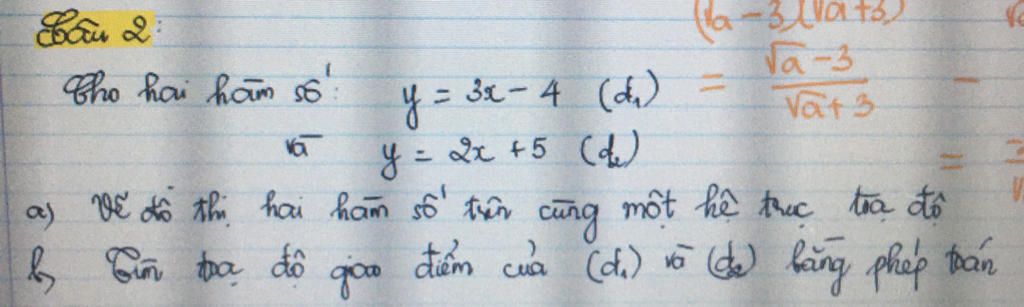 Câu 2:
Cho hai hàm số: y = 3x - 4 (d₁)
và y = 2x + 5 (d₂)
a) Vẽ đồ thị hai hàm số trên cùng một hệ trục tọa độ
b, Tìm tọa độ giao điểm của (d₁) và (d₂) bằng phép toán
(√a - 3)(√a + 3)
= √a - 3 / √a + 3 -
=